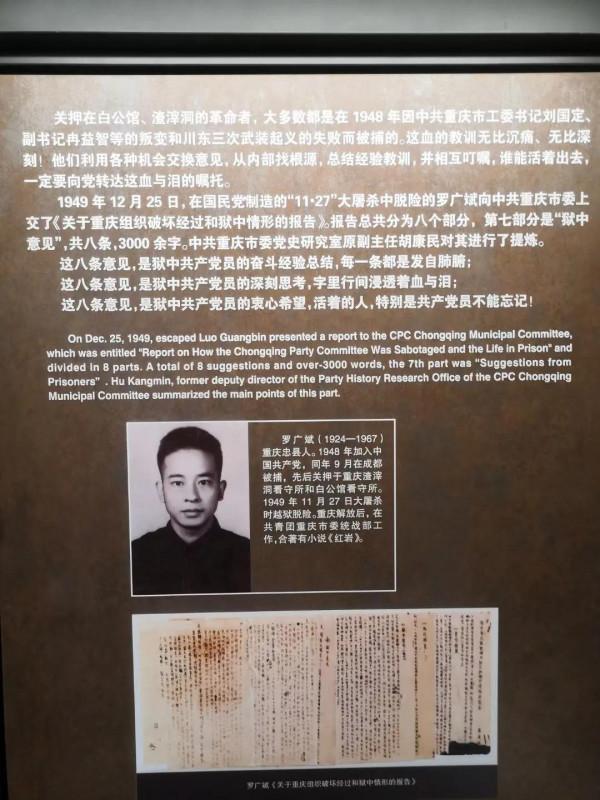 关押在白公馆、渣滓洞的革命者，大多数都是在 1948 年因中共重庆市工委书记刘国定、
副书记冉益智等的叛变和川东三次武装起义的失败而被捕的。这血的教训无比沉痛、无比深
刻！他们利用各种机会交换意见，从内部找根源，总结经验教训，并相互叮嘱，谁能活着出去，
一定要向党转达这血与泪的嘱托。
1949 年 12 月 25 日，在国民党制造的“11·27”大屠杀中脱险的罗广斌向中共重庆市委上
交了《关于重庆组织破坏经过和狱中情形的报告》。报告总共分为八个部分，第七部分是“狱中
意见”，共八条，3000 余字。中共重庆市委党史研究室原副主任胡康民对其进行了提炼。
这八条意见，是狱中共产党员的奋斗经验总结，每一条都是发自肺腑；
这八条意见，是狱中共产党员的深刻思考，字里行间浸透着血与泪；
这八条意见，是狱中共产党员的衷心希望，活着的人，特别是共产党员不能忘记！
On Dec. 25, 1949, escaped Luo Guangbin presented a report to the CPC Chongqing Municipal Committee,
which was entitled "Report on How the Chongqing Party Committee Was Sabotaged and the Life in Prison" and
divided in 8 parts. A total of 8 suggestions and over-3000 words, the 7th part was "Suggestions from
Prisoners" . Hu Kangmin, former deputy director of the Party History Research Office of the CPC Chongqing
Municipal Committee summarized the main points of this part.
罗广斌（1924—1967）
重庆忠县人。1948 年加入中
国共产党，同年 9 月在成都
被捕，先后关押于重庆渣滓
洞看守所和白公馆看守所。
1949 年 11 月 27 日大屠杀
时越狱脱险。重庆解放后，在
共青团重庆市委统战部工
作，合著有小说《红岩》。
罗广斌《关于重庆组织破坏经过和狱中情形的报告》